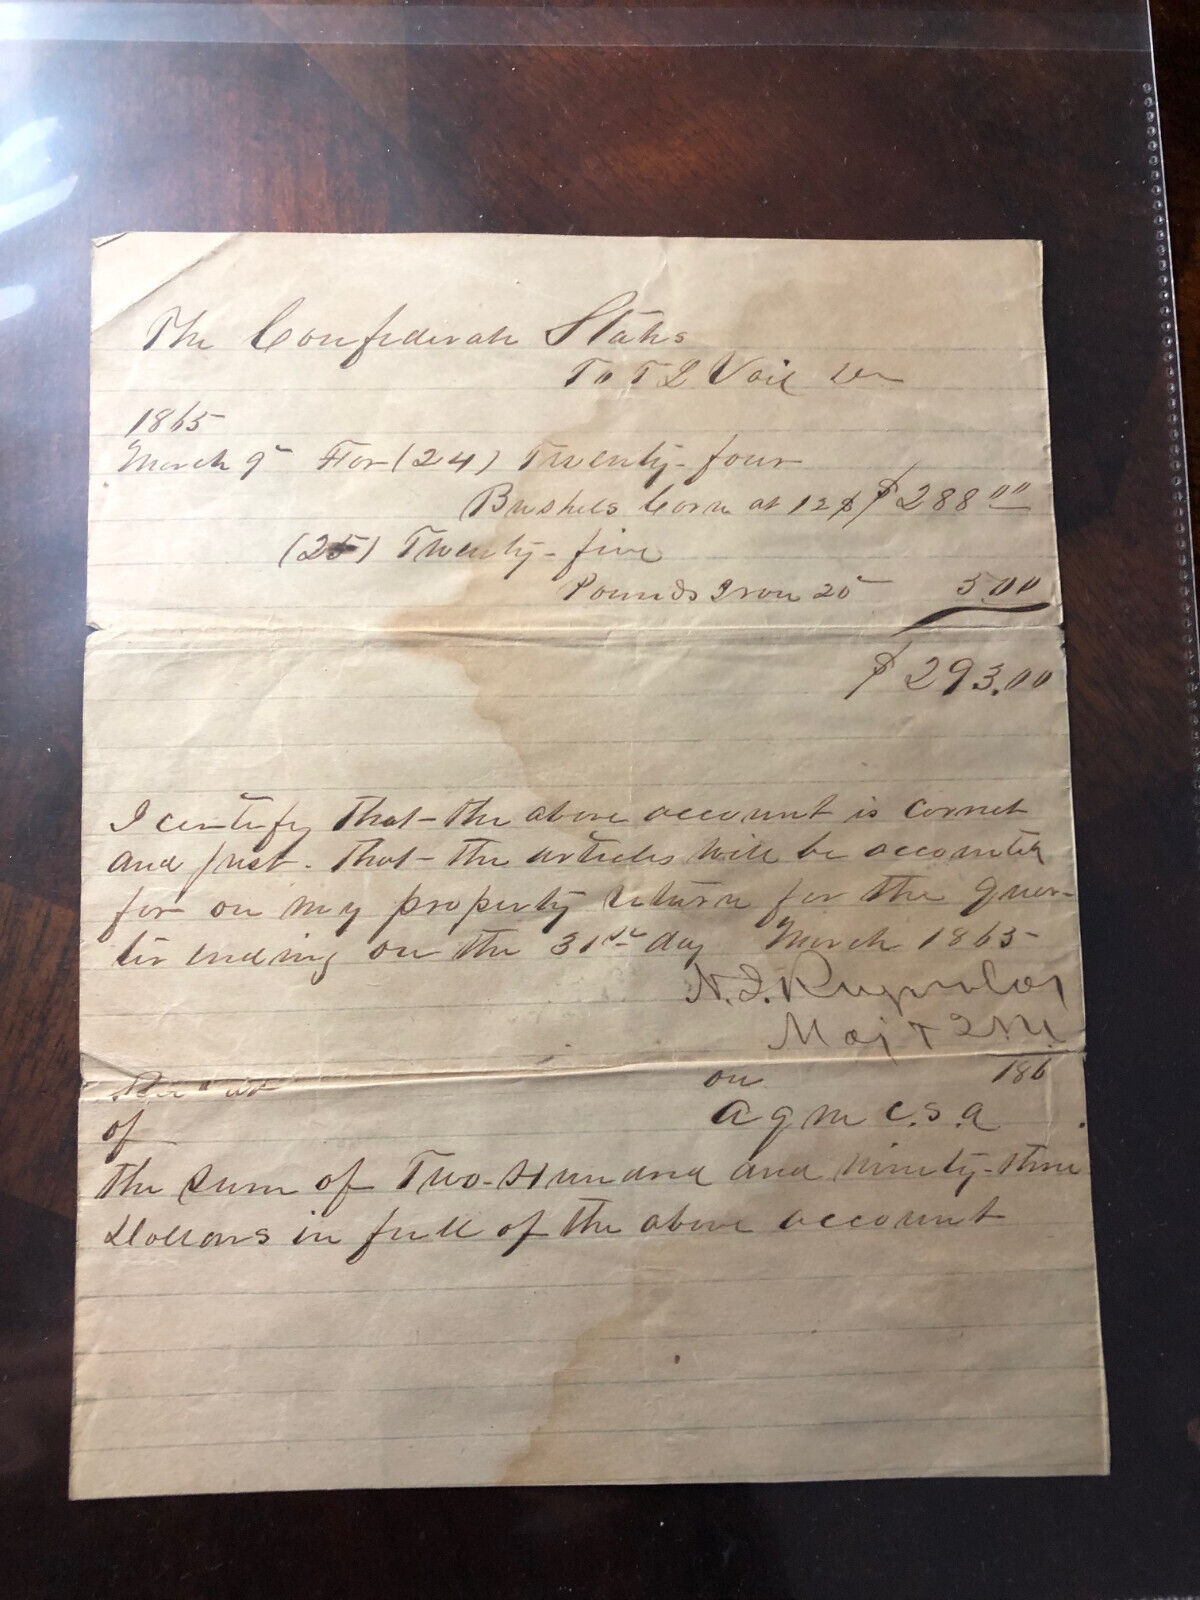 The Confederate States
To T L Vail Dr
1865
March 9th For (24) Twenty-four
Bushels Corn at 12$ $288.00
(25) Twenty-five
Pounds Iron 20 5.00
$293.00
I certify that the above account is correct
and just. That the articles will be accounted
for on my property return for the quar-
ter ending on the 31st day March 1865
N. J. Reynolds
Maj &
on 186
of A Q M C.S.A
the sum of Two-Hundred and ninety-three
Dollars in full of the above account